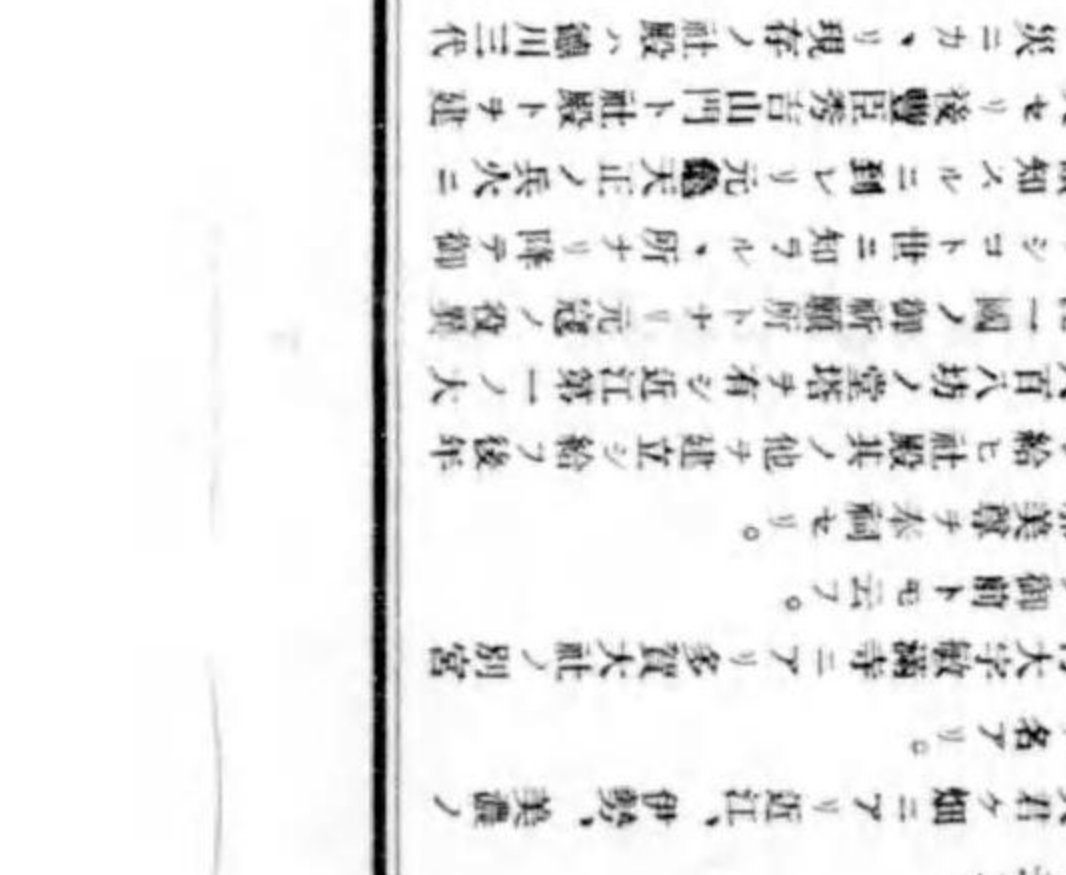 君ヶ畑ニアリ近江、伊勢、美濃ノ
名アリ。
大字敏満寺ニアリ多賀大社ノ別宮
御前トモ云フ。
美尊ヲ本祠セリ。
給ヒ社殿其ノ他ヲ建立シ給フ後年
百六坊ノ堂塔ヲ有シ近江第一ノ大
一國ノ御祈願所トナリ元寇ノ役異
シコト世ニ知ラル、所ナリ降テ御
知スルニ到レリ元龜天正ノ兵火ニ
セリ後豐臣秀吉山門ト社殿トヲ建
災ニカ、リ現存ノ社殿ハ德川三代